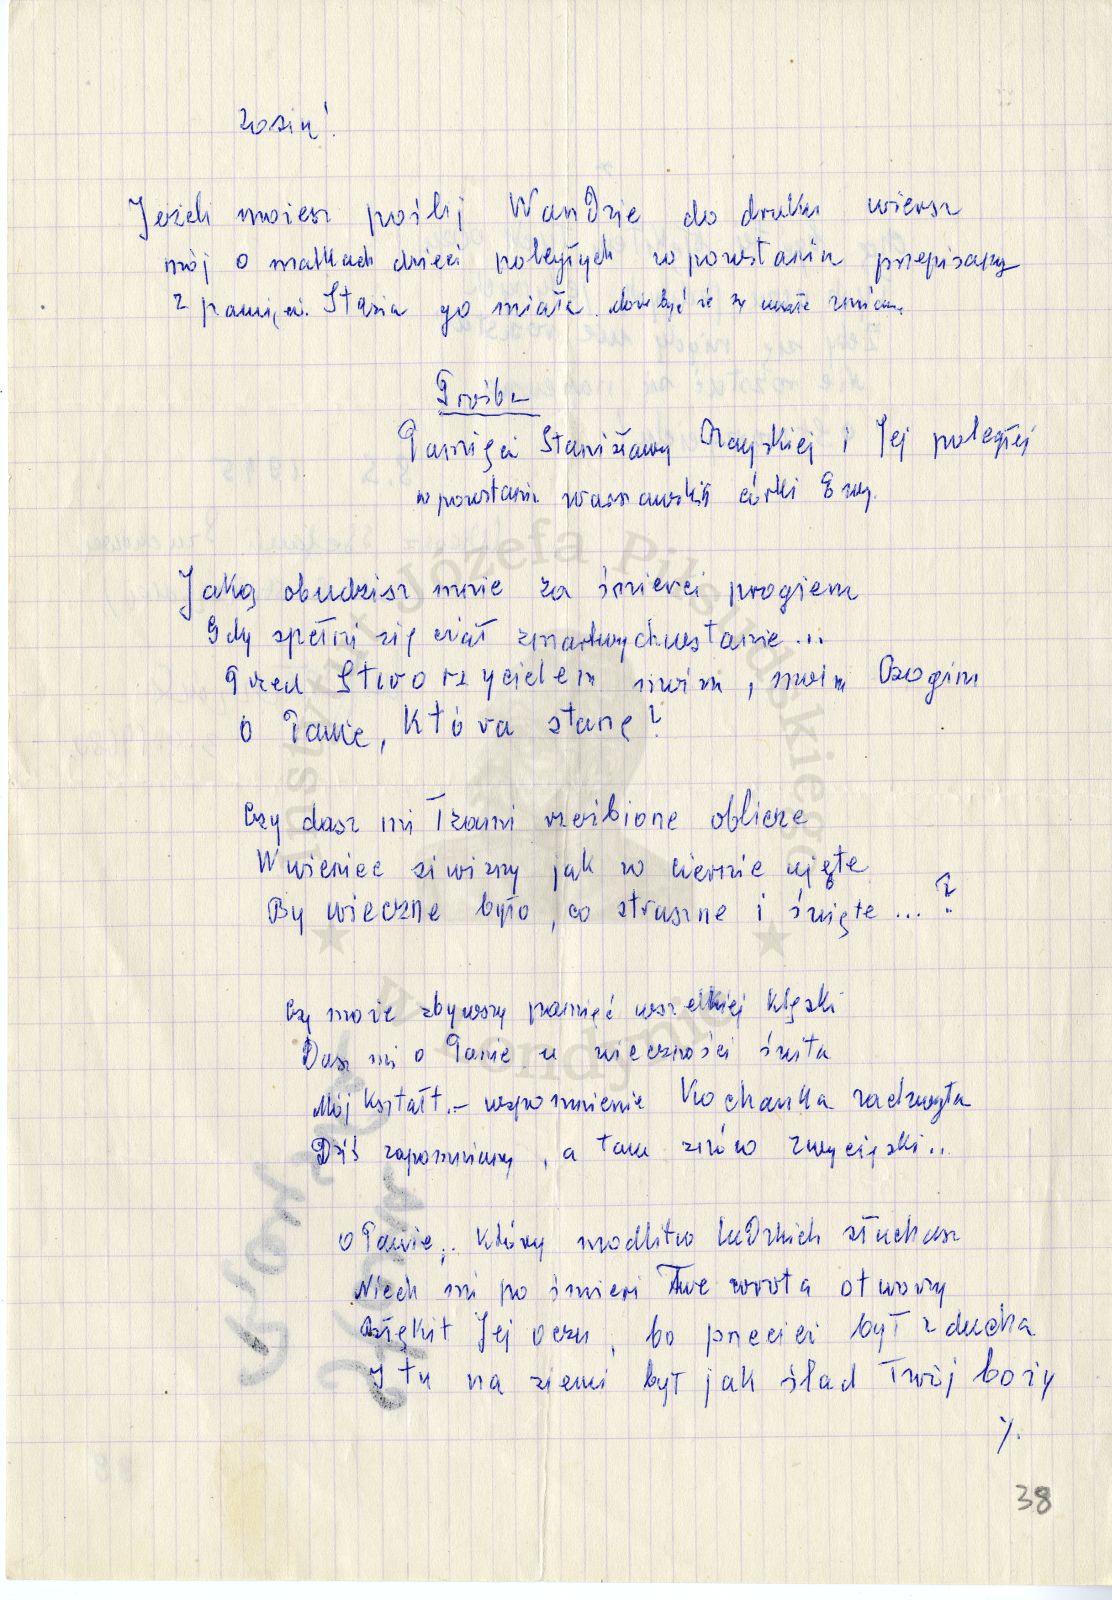 Zosiu!
Jeżeli możesz poślij Wandzie do druku wiersz
mój o matkach dzieci poległych w powstaniu przepisany
z pamięci. Stasia go miała. może być że są małe
Prośba
Pamięci Stanisławy i Jej poległej
w powstaniu warszawskim córki Ewy.
Jaką obudzisz mnie za śmierci progiem
Gdy spełni się ciał zmartwychwstanie...
Przed Stworzycielem moim, moim Bogiem
O Panie, Która stanę?
Czy dasz mi łzami rzeźbione oblicze
W wieniec siwizny jak w ciernie ujęte
By wieczne było, co straszne i święte ... ?
Czy może zbywszy pamięć wszelkiej klęski
Dasz mi o Panie u wieczności świta
Mój kształt – wspomnienie Kochanka
Dziś zapomniany, a tam znów zwycięski..
O Panie, który modlitw ludzkich słuchasz
Niech mi po śmierci Twe wrota otworzy
Błękit Jej oczu, bo przecież był z ducha
I tu na ziemi był jak ślad Twój boży
y.
38
Instytut Józefa Piłsudskiego
w Londynie